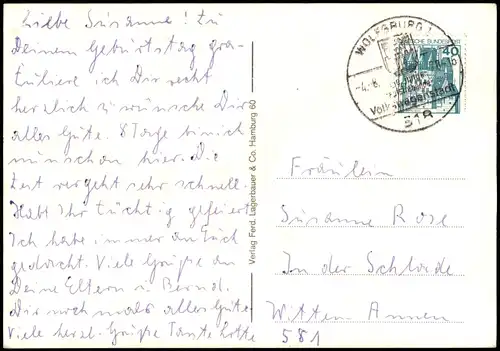 Liebe Susanne! Zu
Deinem Geburtstag gra-
tuliere ich Dir recht
herzlich u. wünsche Dir
alles Gute. 8 Tage bin ich
nun schon hier. Die
Zeit vergeht sehr schnell.
Habt Ihr tüchtig gefeiert
Ich habe immer an Euch
gedacht. Viele Grüße an
Deine Eltern u. Bernd.
Dir noch mals alles Gute
Viele herzl. Grüße Tante Lotte
Verlag Ferd. Lagerbauer & Co. Hamburg 60
WOLFSBURG 1
-4.-8.
Volkswagenstadt
318
DEUTSCHE BUNDESPOST
40
Fräulein
Susanne Rose
In der Schlade
Witten Annen
581